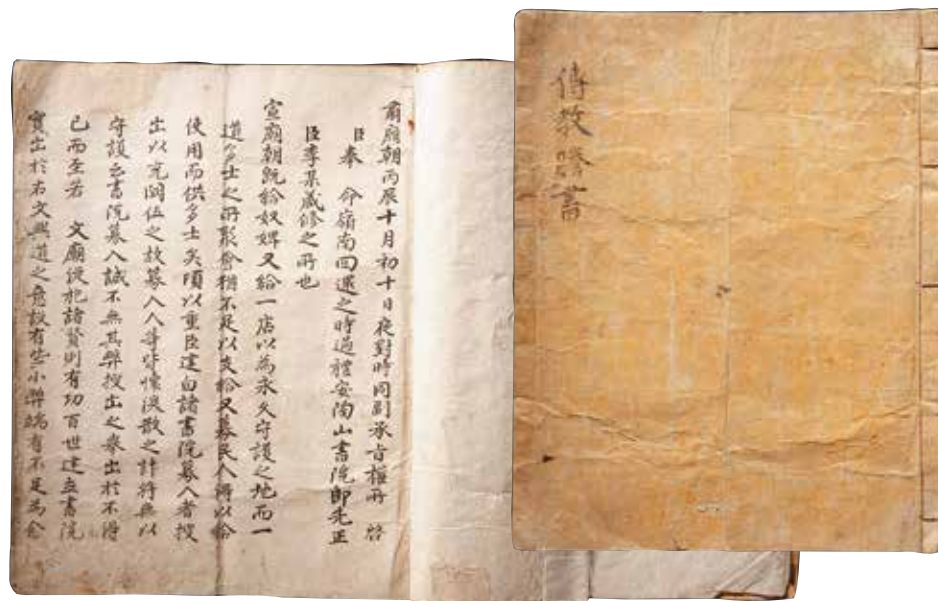 傳教謄書
肅廟朝丙辰十月初十日夜對時同副承旨權所 啓
臣奉 命嶺南回還之時過禮安陶山書院卽先正
臣李某藏修之所也
宣廟朝旣給奴婢又給一店以為永久守護之地而一
道多士之所聚會猶不足以支給又募民人得以給
使用而供多士矣頃以重臣建白諸書院募入者搜
出以充闕伍之故募入人等皆懷渙散之計將無以
守護云書院募入誠不無其弊搜出之擧出於不得
已而至若 文廟從祀諸賢則有功百世建立書院
實出於右文興道之意設有些小弊端有不足為念